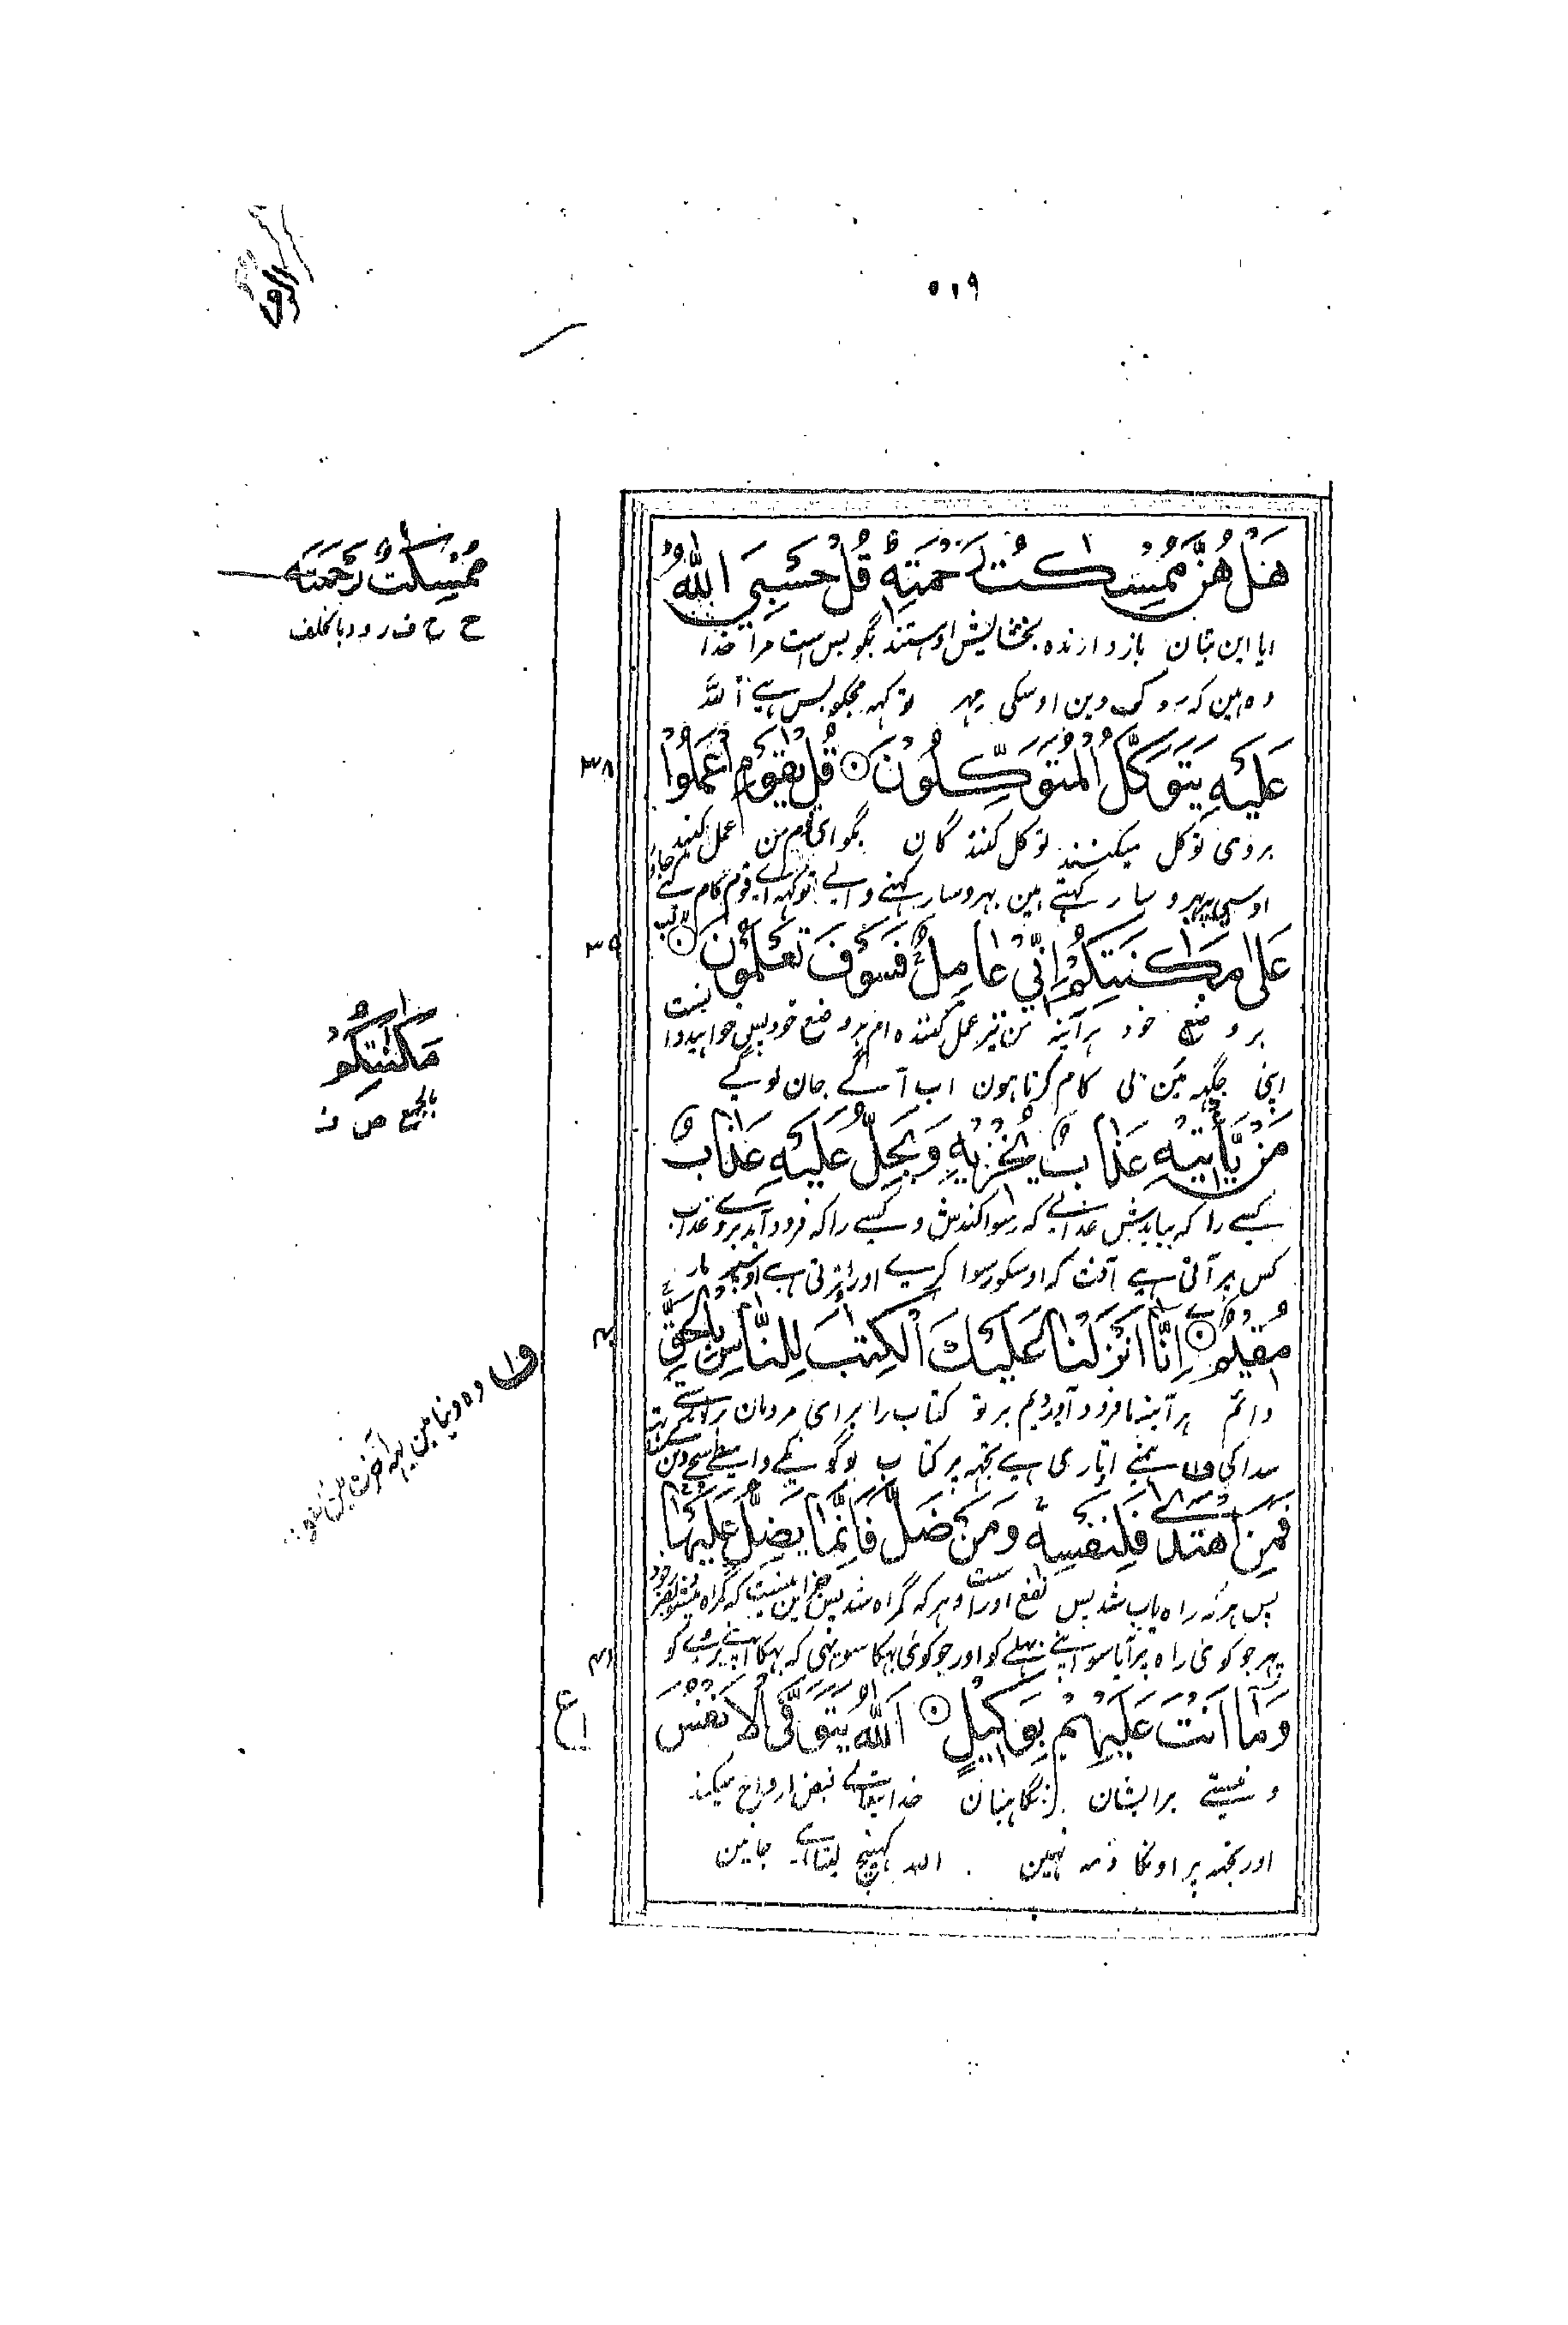 ٥١٩
هَلْ هُنَّ مُمْسِكٰتُ رَحْمَتِهٖ قُلْ حَسْبِيَ اللّٰهُ
ایا این بتان بازدارنده بخشایش او هستند بگو بس است مرا خدا
وہ ہین کہ روک دین اوسکی مہر تو کہہ مجکو بس ہے اللہ
عَلَيْهِ يَتَوَكَّلُ الْمُتَوَكِّلُوْنَ ۝ قُلْ يٰقَوْمِ اعْمَلُوْا
٣٨
بروی توکل میکنند توکل کنندگان بگو ای قوم من عمل کنید
اوسی پر بہروسا رکہتے ہین بہروسا رکہنے والے تو کہہ اے قوم کام کئے جاؤ
عَلٰى مَكَانَتِكُمْ اِنِّيْ عَامِلٌ فَسَوْفَ تَعْلَمُوْنَ ۝
٣٩
بر وضع خود ہرآینہ من نیز عمل کننده ام بر وضع خود پس خواہید دانست
اپنی جگہہ مین بی کام کرتا ہون اب آگے جان لوگے
مَنْ يَّأْتِيْهِ عَذَابٌ يُّخْزِيْهِ وَيَحِلُّ عَلَيْهِ عَذَابٌ
کسے را کہ بیایدش عذابے کہ رسوا کندش و کسے را کہ فرود آید بروے عذاب
کس پر آتی ہے آفت کہ اوسکو رسوا کرے اور اترتی ہے اوسپر مار
مُّقِيْمٌ ۝ اِنَّا اَنْزَلْنَا عَلَيْكَ الْكِتٰبَ لِلنَّاسِ بِالْحَقِّ
٤٠
دائم ہرآینہ ما فرود آوردیم بر تو کتاب را برای مردمان براستی
سدا کی ف۱ ہمنے اتاری ہے تجہہ پر کتاب لوگونکے واسطے سچے دین
فَمَنِ اهْتَدٰى فَلِنَفْسِهٖ وَمَنْ ضَلَّ فَاِنَّمَا يَضِلُّ عَلَيْهَا
پس ہرکہ راه یاب شد پس نفع اوراست و ہرکہ گمراه شد پس جز این نیست کہ گمراه میشود بضرر خود
پہر جو کوئی راہ پر آیا سو اپنے بہلے کو اور جو کوئی بہکا سو یہی کہ بہکا اپنے برے کو
٤١
وَمَا اَنْتَ عَلَيْهِمْ بِوَكِيْلٍ ۝ اَللّٰهُ يَتَوَفَّى الْاَنْفُسَ
ع
و نیستی بر ایشان نگاہبان خدایتعالے قبض ارواح میکند
اور تجہہ پر اونکا ذمہ نہین اللہ کہینچ لیتا ہے جانین
مُمْسِكٰتٌ رَحْمَتَه
ح ح ف ر و د بالخلف
مَكٰنٰتِكُمْ
بالجمع ص ف
ف۱ وہ دنیا مین یہہ آخرت مین